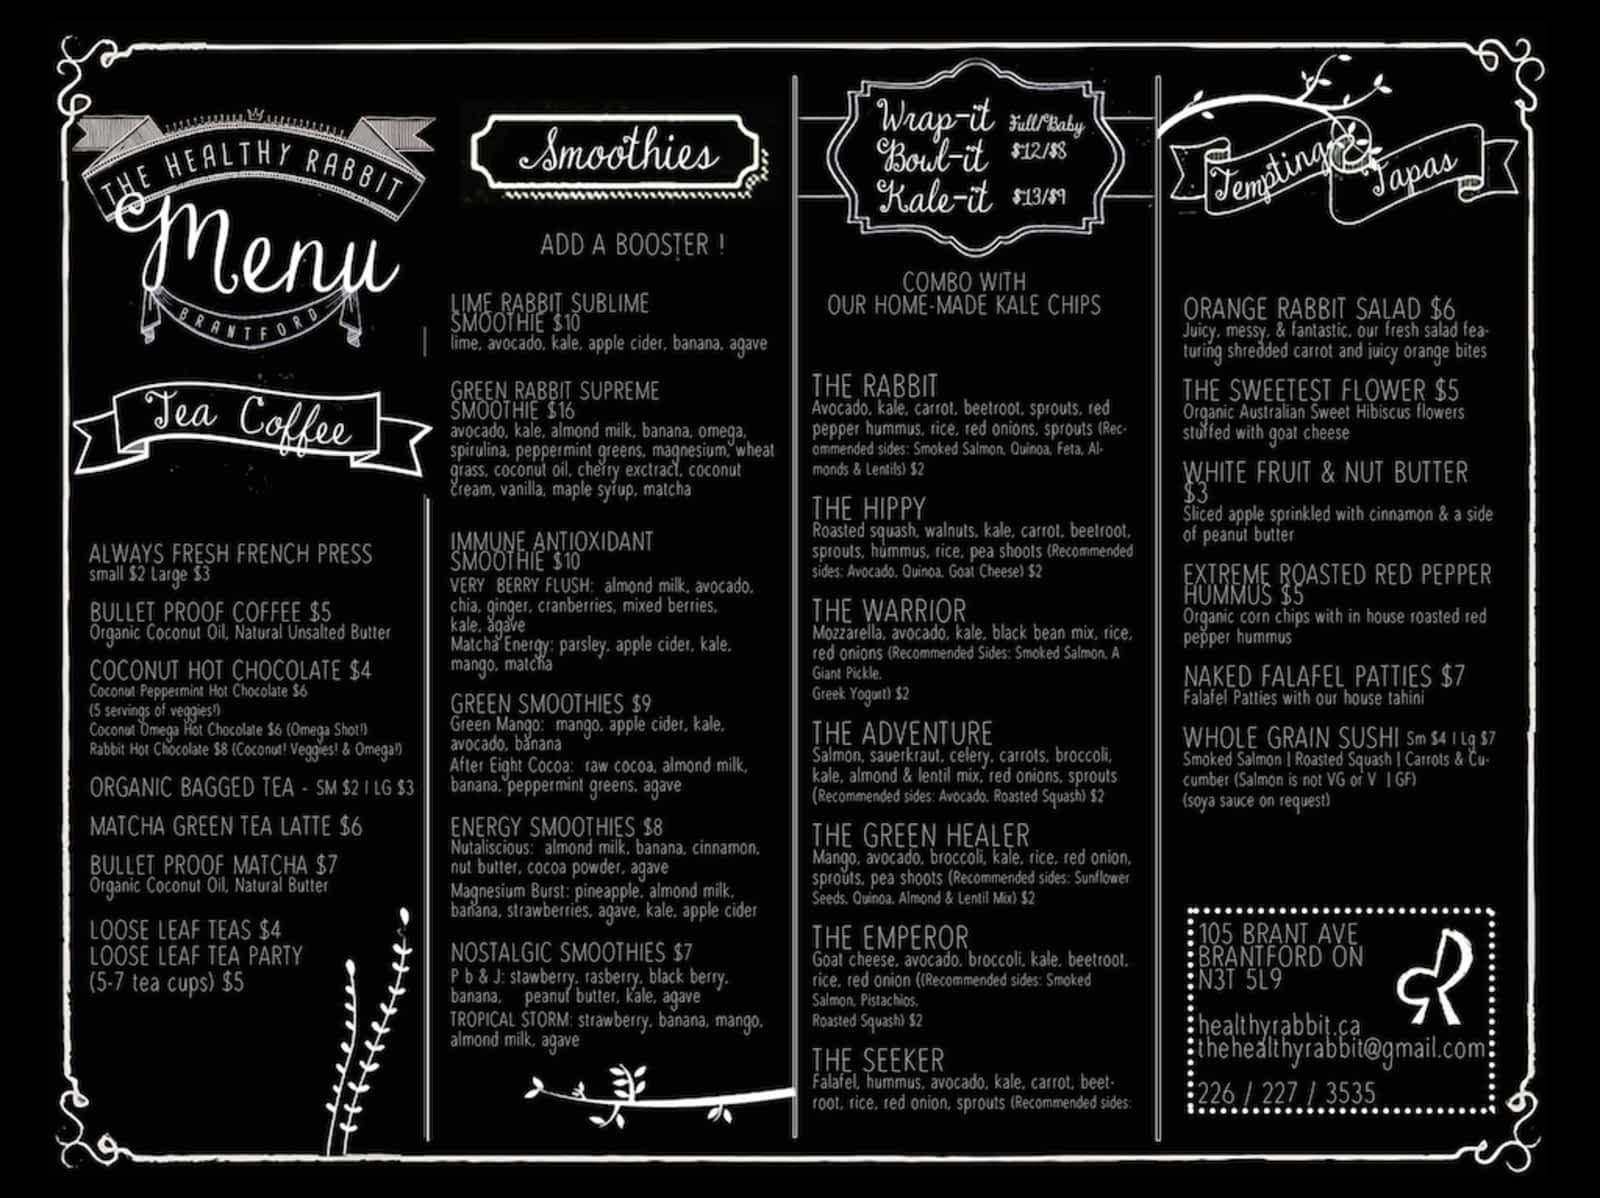 THE HEALTHY RABBIT
Menu
BRANTFORD
Tea Coffee
ALWAYS FRESH FRENCH PRESS
small $2 Large $3
BULLET PROOF COFFEE $5
Organic Coconut Oil, Natural Unsalted Butter
COCONUT HOT CHOCOLATE $4
Coconut Peppermint Hot Chocolate $6
(5 servings of veggies!)
Coconut Omega Hot Chocolate $6 (Omega Shot!)
Rabbit Hot Chocolate $8 (Coconut! Veggies! & Omega!)
ORGANIC BAGGED TEA - SM $2 | LG $3
MATCHA GREEN TEA LATTE $6
BULLET PROOF MATCHA $7
Organic Coconut Oil, Natural Butter
LOOSE LEAF TEAS $4
LOOSE LEAF TEA PARTY
(5-7 tea cups) $5
Smoothies
ADD A BOOSTER !
LIME RABBIT SUBLIME
SMOOTHIE $10
lime, avocado, kale, apple cider, banana, agave
GREEN RABBIT SUPREME
SMOOTHIE $16
avocado, kale, almond milk, banana, omega,
spirulina, peppermint greens, magnesium, wheat
grass, coconut oil, cherry exctract, coconut
cream, vanilla, maple syrup, matcha
IMMUNE ANTIOXIDANT
SMOOTHIE $10
VERY BERRY FLUSH: almond milk, avocado,
chia, ginger, cranberries, mixed berries,
kale, agave
Matcha Energy: parsley, apple cider, kale,
mango, matcha
GREEN SMOOTHIES $9
Green Mango: mango, apple cider, kale,
avocado, banana
After Eight Cocoa: raw cocoa, almond milk,
banana, peppermint greens, agave
ENERGY SMOOTHIES $8
Nutaliscious: almond milk, banana, cinnamon,
nut butter, cocoa powder, agave
Magnesium Burst: pineapple, almond milk,
banana, strawberries, agave, kale, apple cider
NOSTALGIC SMOOTHIES $7
P b & J: stawberry, rasberry, black berry,
banana, peanut butter, kale, agave
TROPICAL STORM: strawberry, banana, mango,
almond milk, agave
Wrap-it Full/Baby
Bowl-it $12/$8
Kale-it $13/$9
COMBO WITH
OUR HOME-MADE KALE CHIPS
THE RABBIT
Avocado, kale, carrot, beetroot, sprouts, red
pepper hummus, rice, red onions, sprouts (Rec-
ommended sides: Smoked Salmon, Quinoa, Feta, Al-
monds & Lentils) $2
THE HIPPY
Roasted squash, walnuts, kale, carrot, beetroot,
sprouts, hummus, rice, pea shoots (Recommended
sides: Avocado, Quinoa, Goat Cheese) $2
THE WARRIOR
Mozzarella, avocado, kale, black bean mix, rice,
red onions (Recommended Sides: Smoked Salmon, A
Giant Pickle,
Greek Yogurt) $2
THE ADVENTURE
Salmon, sauerkraut, celery, carrots, broccoli,
kale, almond & lentil mix, red onions, sprouts
(Recommended sides: Avocado, Roasted Squash) $2
THE GREEN HEALER
Mango, avocado, broccoli, kale, rice, red onion,
sprouts, pea shoots (Recommended sides: Sunflower
Seeds, Quinoa, Almond & Lentil Mix) $2
THE EMPEROR
Goat cheese, avocado, broccoli, kale, beetroot,
rice, red onion ((Recommended sides: Smoked
Salmon, Pistachios,
Roasted Squash) $2
THE SEEKER
Falafel, hummus, avocado, kale, carrot, beet-
root, rice, red onion, sprouts (Recommended sides:
Tempting Tapas
ORANGE RABBIT SALAD $6
Juicy, messy, & fantastic, our fresh salad fea-
turing shredded carrot and juicy orange bites
THE SWEETEST FLOWER $5
Organic Australian Sweet Hibiscus flowers
stuffed with goat cheese
WHITE FRUIT & NUT BUTTER
$3
Sliced apple sprinkled with cinnamon & a side
of peanut butter
EXTREME ROASTED RED PEPPER
HUMMUS $5
Organic corn chips with in house roasted red
pepper hummus
NAKED FALAFEL PATTIES $7
Falafel Patties with our house tahini
WHOLE GRAIN SUSHI Sm $4 | Lg $7
Smoked Salmon | Roasted Squash | Carrots & Cu-
cumber (Salmon is not VG or V | GF)
(soya sauce on request)
105 BRANT AVE
BRANTFORD ON
N3T 5L9
healthyrabbit.ca
thehealthyrabbit@gmail.com
226 / 227 / 3535